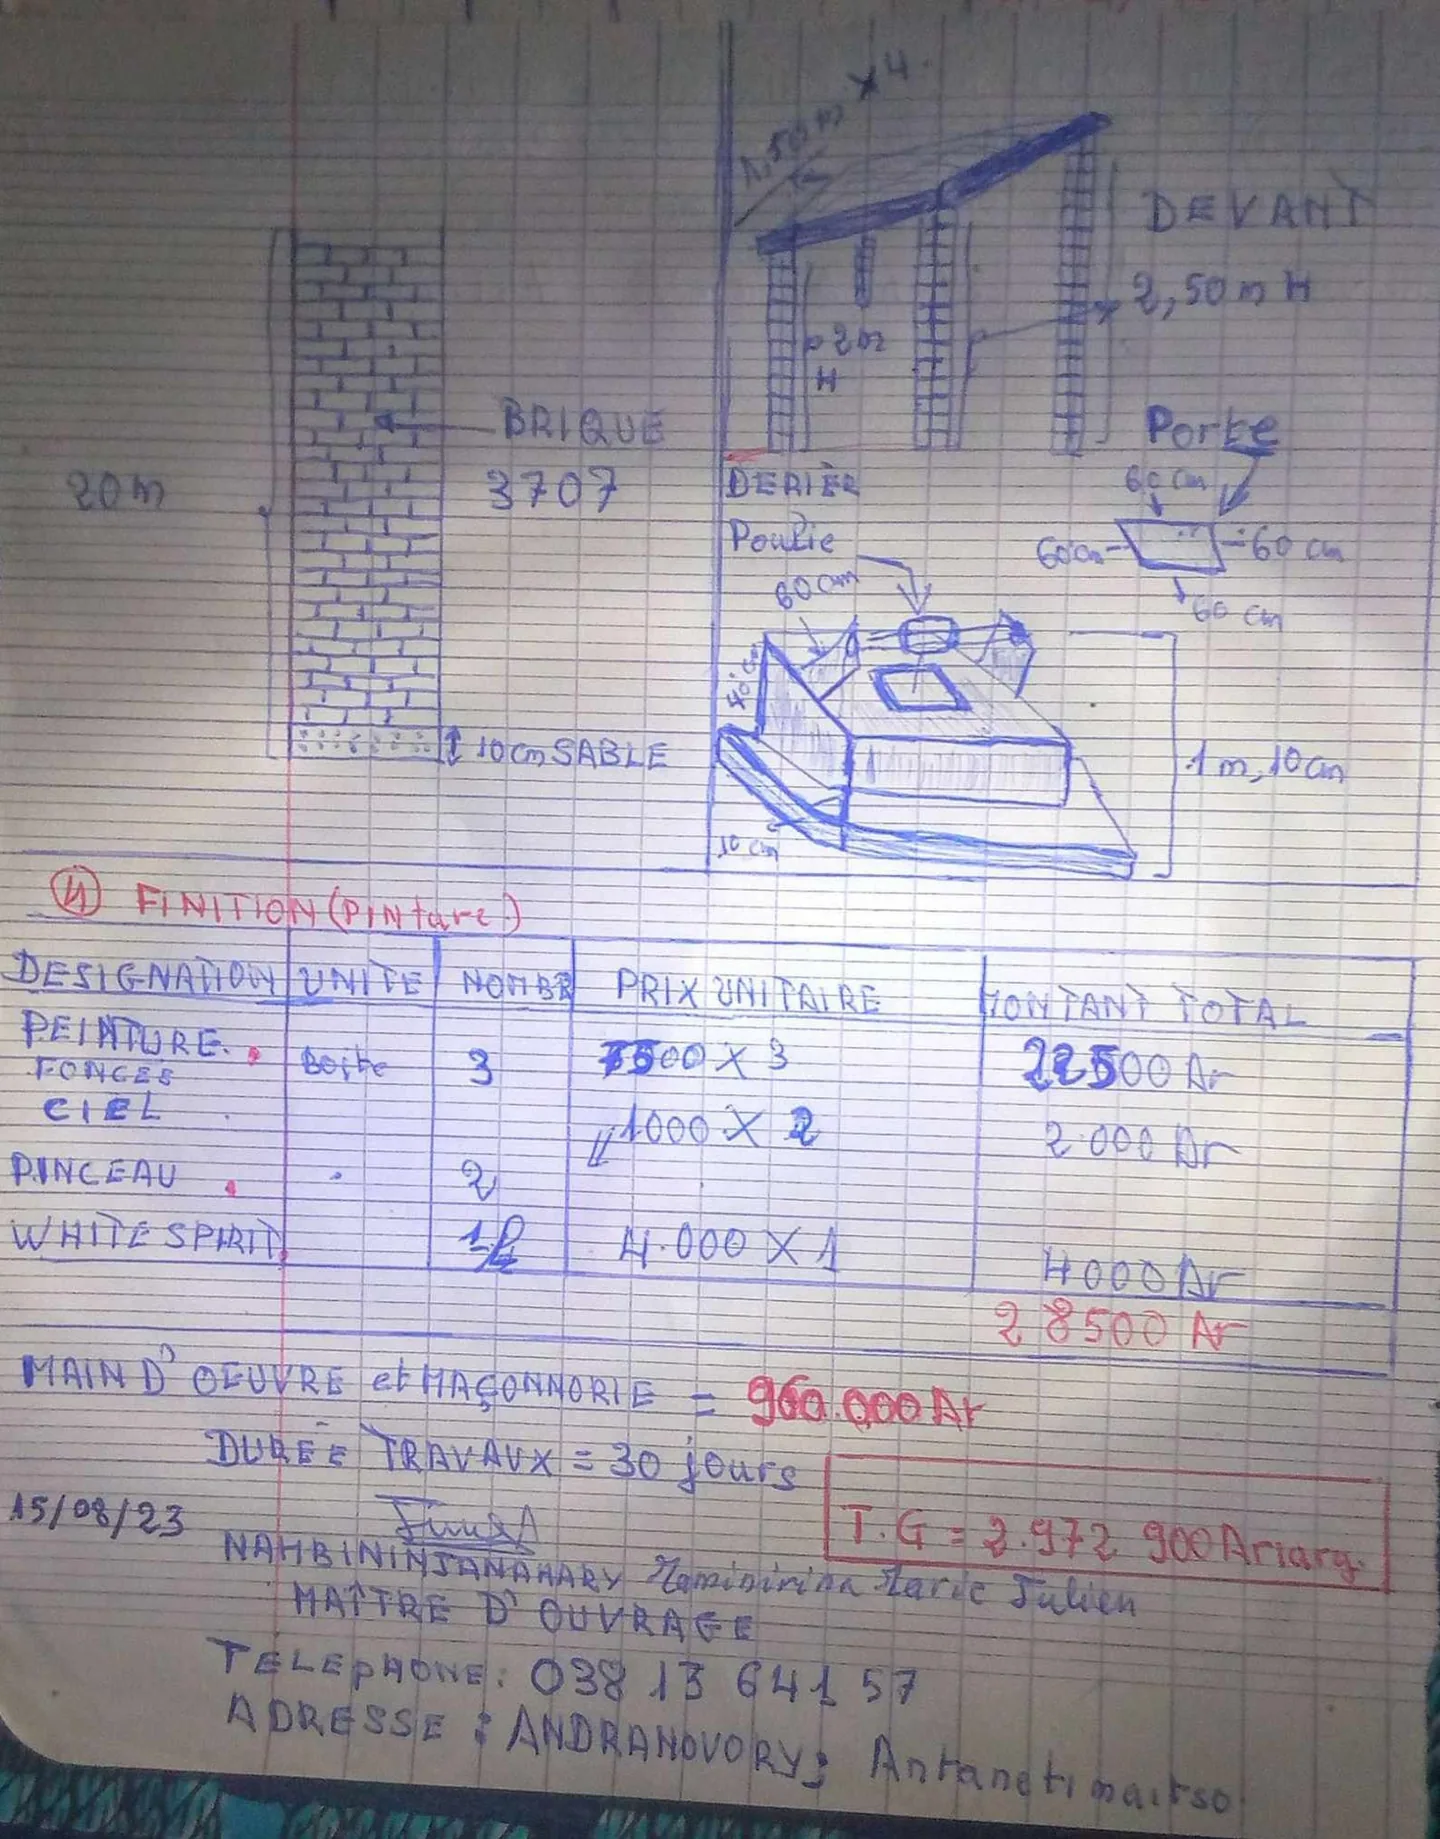 1,50m x 4.
DEVANT
2,50m H
2m
H
BRIQUE
3707
20m
10cm SABLE
DERIÈR
Porte
60 cm
60cm
60 cm
60 cm
Poulie
60cm
40cm
1m,10cm
10 cm
4 FINITION (PINture)
DESIGNATION UNITE NOMBR PRIX UNITAIRE MONTANT TOTAL
PEINTURE. Boite 3 7500 X 3 22500 Ar
FONCES
CIEL 1000 X 2 2.000 Ar
PINCEAU 2
WHITE SPIRIT 1 4.000 X 1 4000 Ar
28500 Ar
MAIN D'OEUVRE et MAÇONNORIE = 960.000 Ar
DURÉE TRAVAUX = 30 jours
15/08/23
T.G = 2.972 900 Ariary.
NAMBININJANAHARY Marie Julien
MAÎTRE D'OUVRAGE
TELEPHONE: 038 13 641 57
ADRESSE : ANDRANOVORY; Antanetimaitso